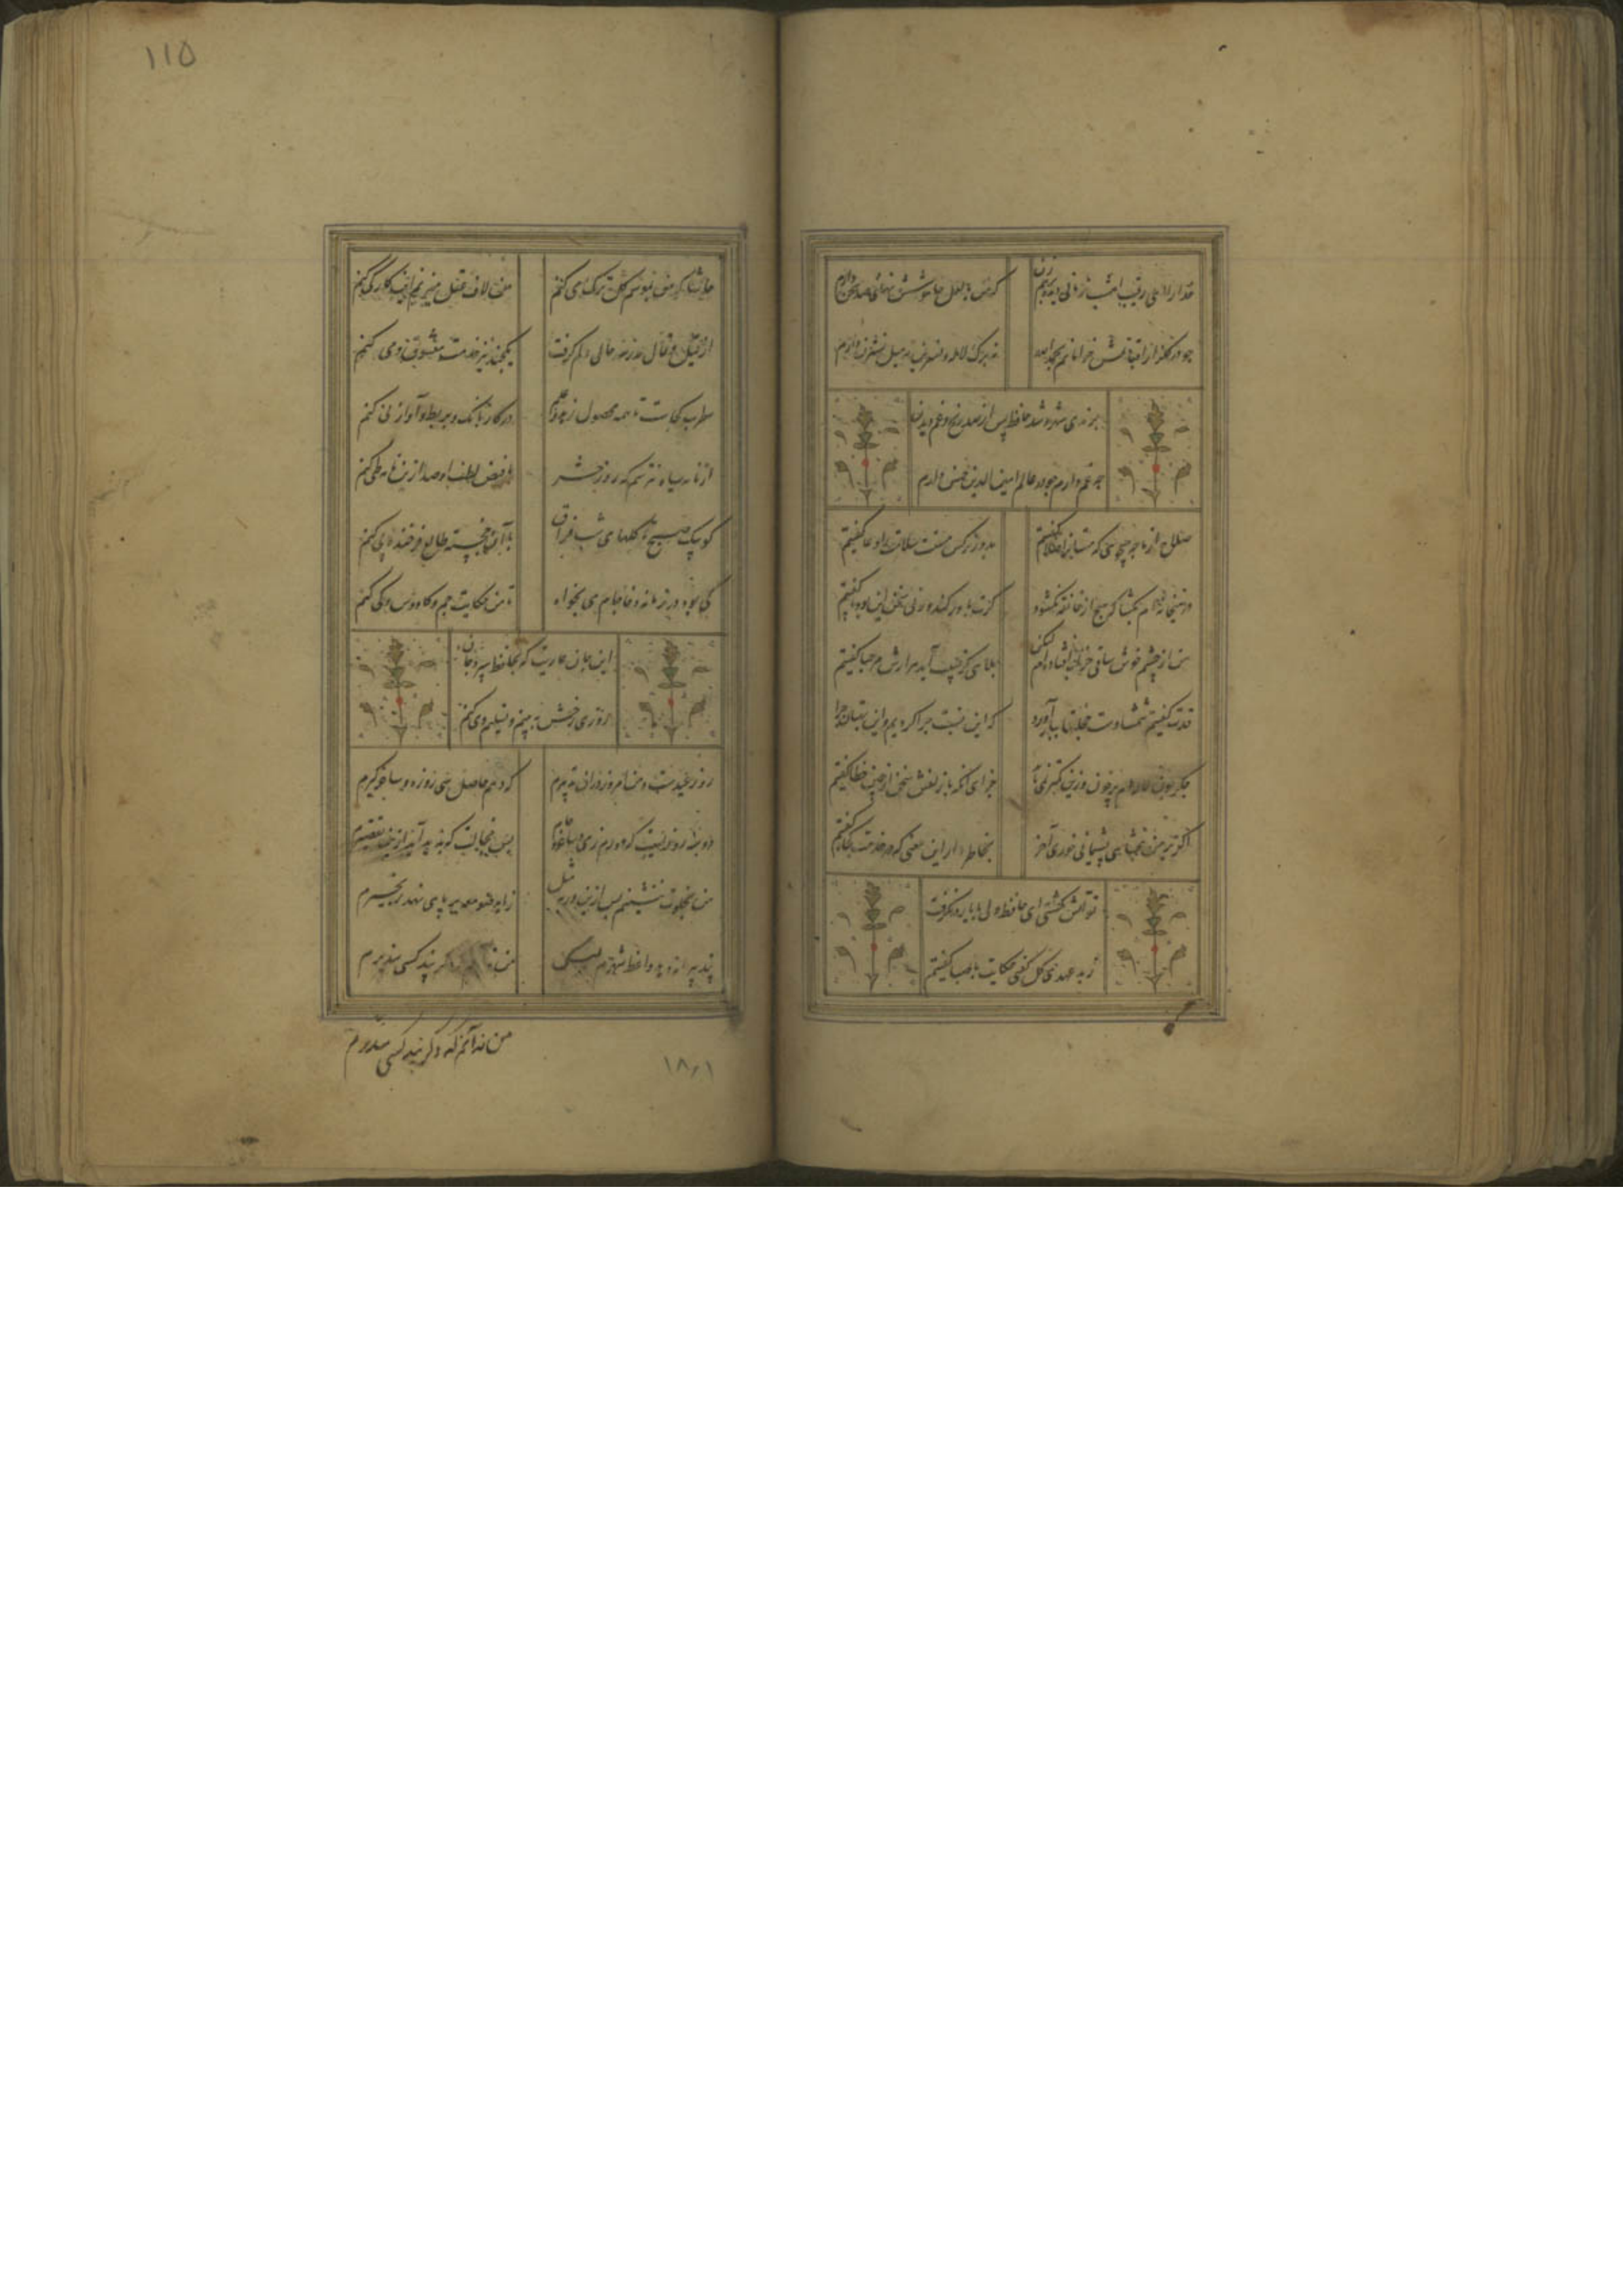 خدارا ای رقیب امشب زمانی دیده بر هم زن
که من با لعل خاموشش نهانی صد سخن دارم
چو در گلزار اقبالش خرامانم بحمدالله
نه برگ لاله و نسرین نه میل نسترن دارم
برندی شهره شد حافظ پس از صد رنج و غم دیدن
چه غم دارم چو در عالم امین الدین حسن دارم
صلاح از ما چه میجویی که مستانرا صلا گفتیم
بدور نرگس مستت سلامت را دعا گفتیم
در میخانه ام بکشا که هیچ از خانقه نکشود
گرت باور کند ورنی سخن این بود و ما گفتیم
من از چشم خوش ساقی خراب افتاده ام لیکن
بلایی کز حبیب آید هزارش مرحبا گفتیم
قدت گفتم که شمشادست خجلتها ببار آورد
که این نسبت چرا کردیم و این بهتان چرا
جگر چون لاله ام پر خون
جزای آنکه با زلفش سخن از چین خطا گفتیم
اگر بر من نبخشایی پشیمانی خوری آخر
بخاطر دار این معنی که در خدمت کجا گفتیم
تو آتش گشتی ای حافظ ولی با یار درنگرفت
ز بد عهدی گل گفتی حکایت با صبا گفتیم
۱۱۵
حاشا که من بموسم گل ترک می کنم
من لاف عقل میزنم این کار کی کنم
از قیل و قال مدرسه حالی دلم گرفت
یکچند نیز خدمت معشوق و می کنم
مطرب کجاست تا همه محصول زهد و علم
در کار بانگ و بربط و آواز نی کنم
از نامه سیاه نترسم که روز حشر
با فیض لطف او صد ازین نامه طی کنم
کو پیک صبح تا گلهای شب فراق
با آن خجسته طالع فرخنده پی کنم
کی بود در زمانه وفا جام می بخواه
تا من حکایت جم و کاووس و کی کنم
این جان عاریت که بحافظ سپرد جانان
روزی رخش به بینم و تسلیم وی کنم
روز عیدست و من امروز در آن تدبیرم
که دهم حاصل سی روزه و ساغر گیرم
دو سه روزیست که دورم ز می و ساغر و جام
بس خجالت که پدید آید ازین تقصیرم
من بخلوت ننشینم پس ازین ور بمثل
زاهد صومعه بر پای نهد زنجیرم
پند پیرانه دهد واعظ شهرم لیکن
من نه آنم که دگر پند کسی بپذیرم
من نه آنم که دگر پند کسی بپذیرم